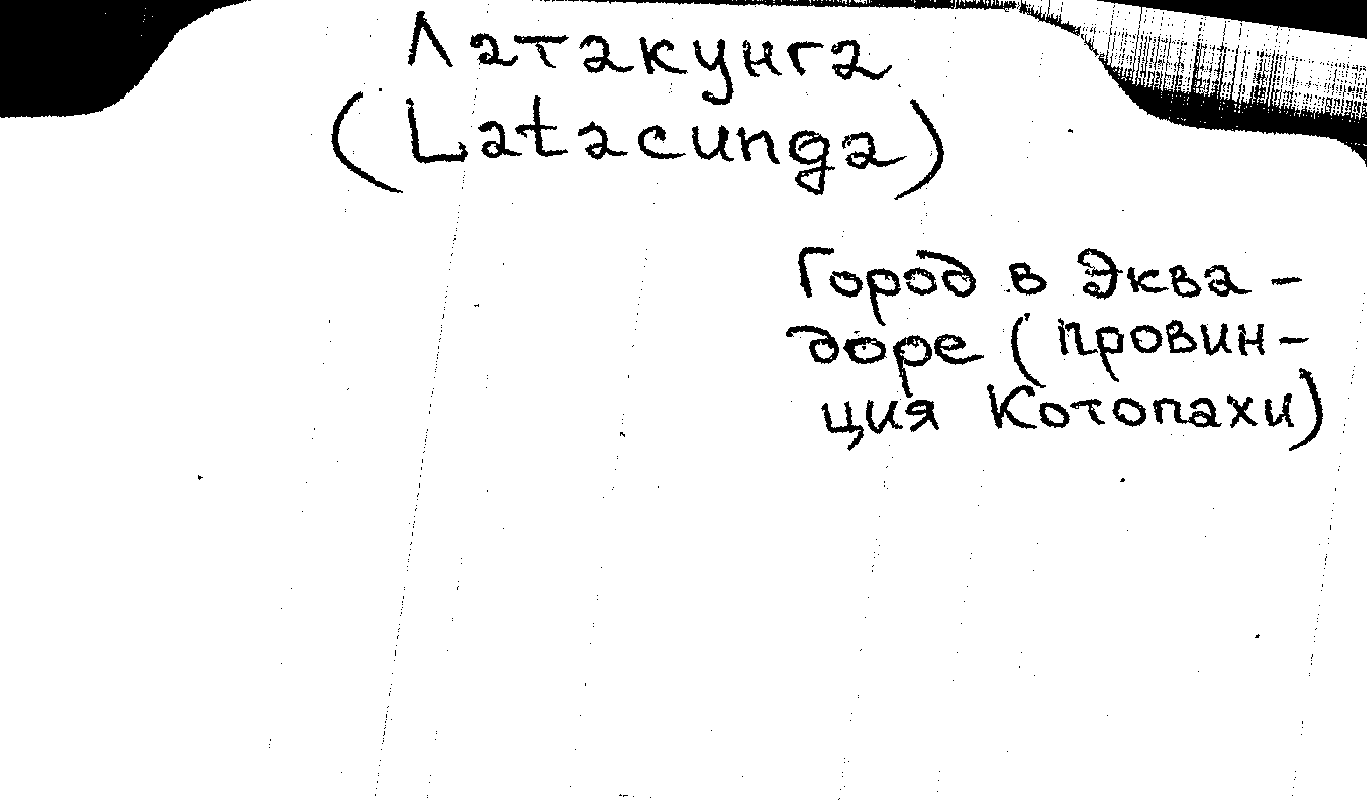 Латакунга
(Latacunga)
Город в Эква-
доре (провин-
ция Котопахи)